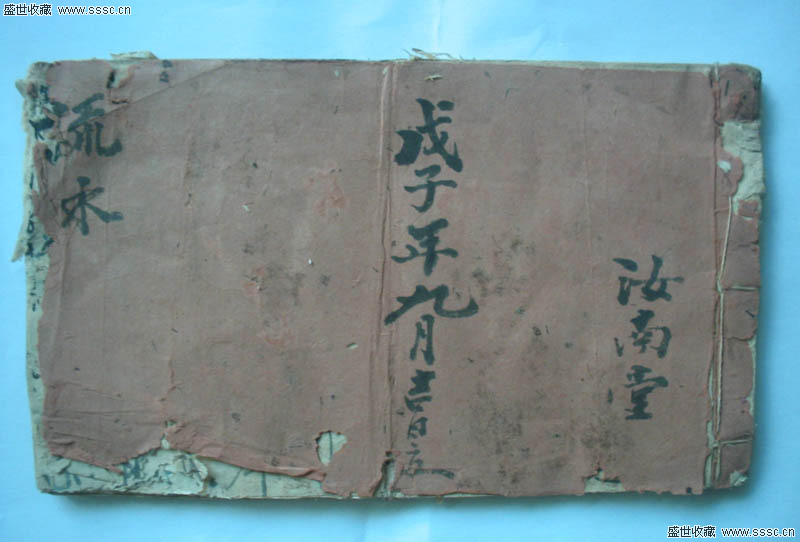 盛世收藏 www.sssc.cn
汝南堂
戊子年九月吉日立
流水
盛世收藏 www.sssc.cn